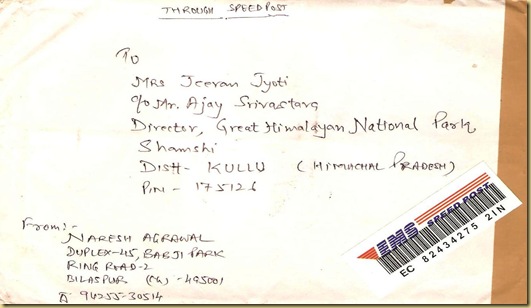 THROUGH SPEEDPOST
To
Mrs Jeevan Jyoti
c/o Mr. Ajay Srivastava
Director, Great Himalayan National Park
Shamshi
DISH- KULLU (HIMACHAL PRADESH)
PIN - 175126
EMS SPEED POST
EC 82434275 2IN
From:-
NARESH AGRAWAL
DUPLEX-45, BABJI PARK
RING ROAD-2
BILASPUR (CG) - 495001
94255-30514